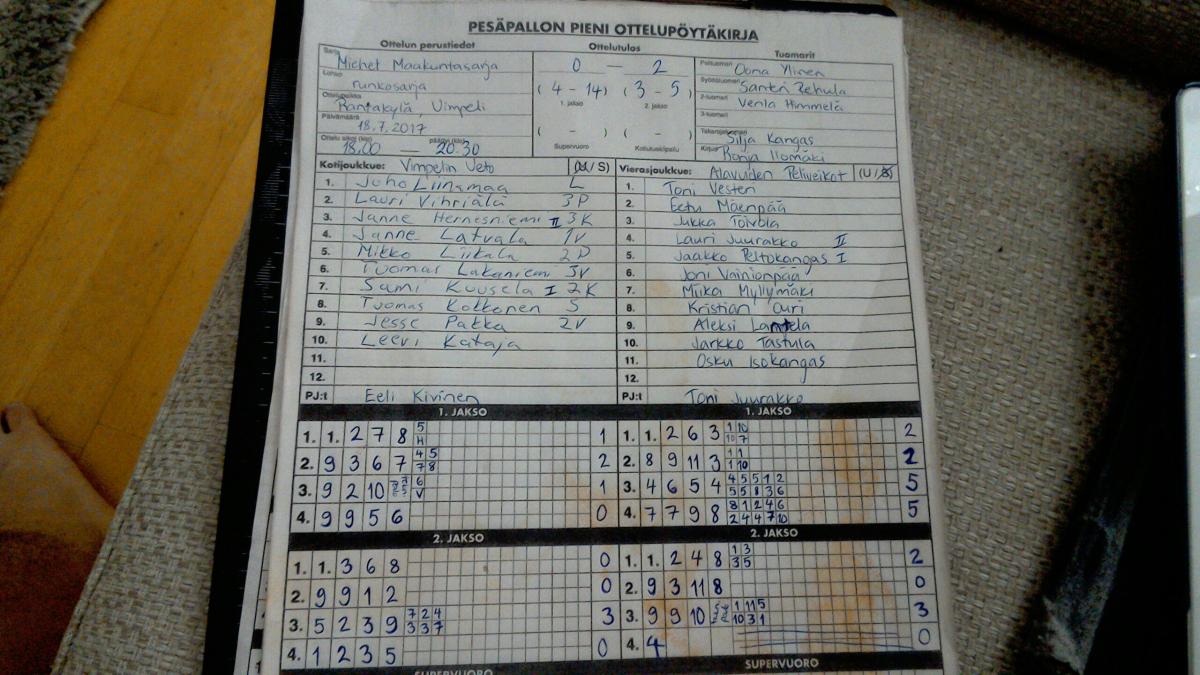 PESÄPALLON PIENI OTTELUPÖYTÄKIRJA
Ottelun perustiedot Ottelutulos Tuomarit
Sarja Michet Maakuntasarja 0 — 2 Pelituomari Oona Ylinen
Lohko runkosarja (4 - 14) (3 - 5) Syöttötuomari Santeri Rehula
Ottelupaikka Rantakylä, Vimpeli 1. jakso 2. jakso 2-tuomari Venla Himmelä
Päivämäärä 18.7.2017 3-tuomari
( - ) ( - ) Takarajatuomari Silja Kangas
Ottelu alkoi (klo) 18.00 — päättyi (klo) 20.30 Supervuoro Kotiutuskilpailu Kirjuri Ronja Ilomäki
Kotijoukkue: Vimpelin Veto (U/S) Vierasjoukkue: Alavuden Peliveikot (U/S)
1. Juho Liinamaa L 1. Toni Vesteri
2. Lauri Vihriälä 3P 2. Eetu Mäenpää
3. Janne Hernesniemi II 3K 3. Jukka Toivola
4. Janne Latvala 1V 4. Lauri Juurakko II
5. Mikko Liikala 2P 5. Jaakko Peltokangas I
6. Tuomas Lakaniemi 3V 6. Joni Vainionpää
7. Sami Kuusela I 2K 7. Miika Myllymäki
8. Tuomas Kotkonen S 8. Kristian Ouri
9. Jesse Pakka 2V 9. Aleksi Lantela
10. Leevi Kataja 10. Jarkko Tastula
11. 11. Osku Isokangas
12. 12.
PJ:t Eeli Kivinen PJ:t Toni Juurakko
1. JAKSO 1. JAKSO
1. 1. 2 7 8 5 H 1 1. 1. 2 6 3 1 10 10 7 2
2. 9 3 6 7 4 5 7 8 2 2. 8 9 11 3 1 1 1 10 2
3. 9 2 10 6 V 1 3. 4 6 5 4 4 5 5 1 2 5 5 8 3 6 5
4. 9 9 5 6 0 4. 7 7 9 8 8 1 2 4 6 2 4 4 7 10 5
2. JAKSO 2. JAKSO
1. 1. 3 6 8 0 1. 1. 2 4 8 1 3 3 5 2
2. 9 9 1 2 0 2. 9 3 11 8 0
3. 5 2 3 9 7 2 4 3 3 7 3 3. 9 9 10 1 11 5 10 3 1 3
4. 1 2 3 5 0 4. 4 0
SUPERVUORO SUPERVUORO